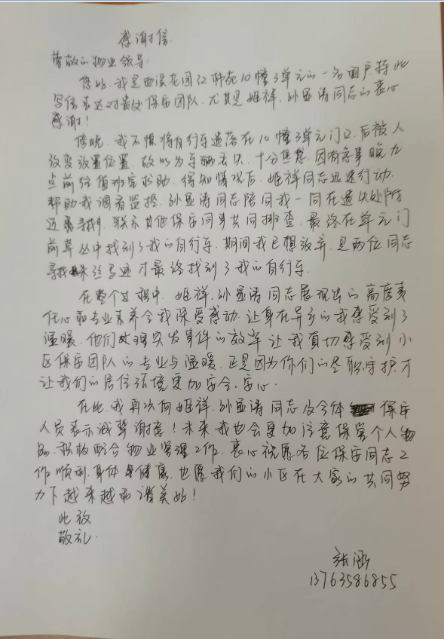 感谢信
尊敬的物业领导:
您好,我是西溪花园江柳苑10幢3单元的一名租户,特此
写信表达对最处保安团队,尤其是姬祥、孙显涛同志的衷心
感谢!
傍晚,我不慎将自行车遗落在10幢3单元门口,后被人
放至放置位置,故以为车辆丢失,十分焦急,因有
点前往值班室求助,得知情况后,姬祥同志迅速行动,
帮助我调看监控,孙显涛同志陪同我一同在遗失处附
近寻找,联系其他保安同事共同排查,最终在单元门
前草丛中找到了我的自行车,期间我已想放弃,是两位同志
才最终找到了我的自行车。
在整个过程中,姬祥、孙显涛同志展现出的高度责
任心和专业素养令我深受感动,让身在异乡的我感受到了
温暖。他们处理突发事件的效率让我真切感受到小
区保安团队的专业与温暖,正是因为你们的尽职守护才
让我们的居住环境更加安全、安心。
在此,我再次向姬祥、孙显涛同志及全体保安
人员表示诚挚谢意!未来我也会更加注意保管个人物
品,积极配合物业管理工作。衷心祝愿各位保安同志工
作顺利,身体健康,也愿我们的小区在大家的共同努
力下越来越和谐美好!
此致
敬礼
张涵
13763586855